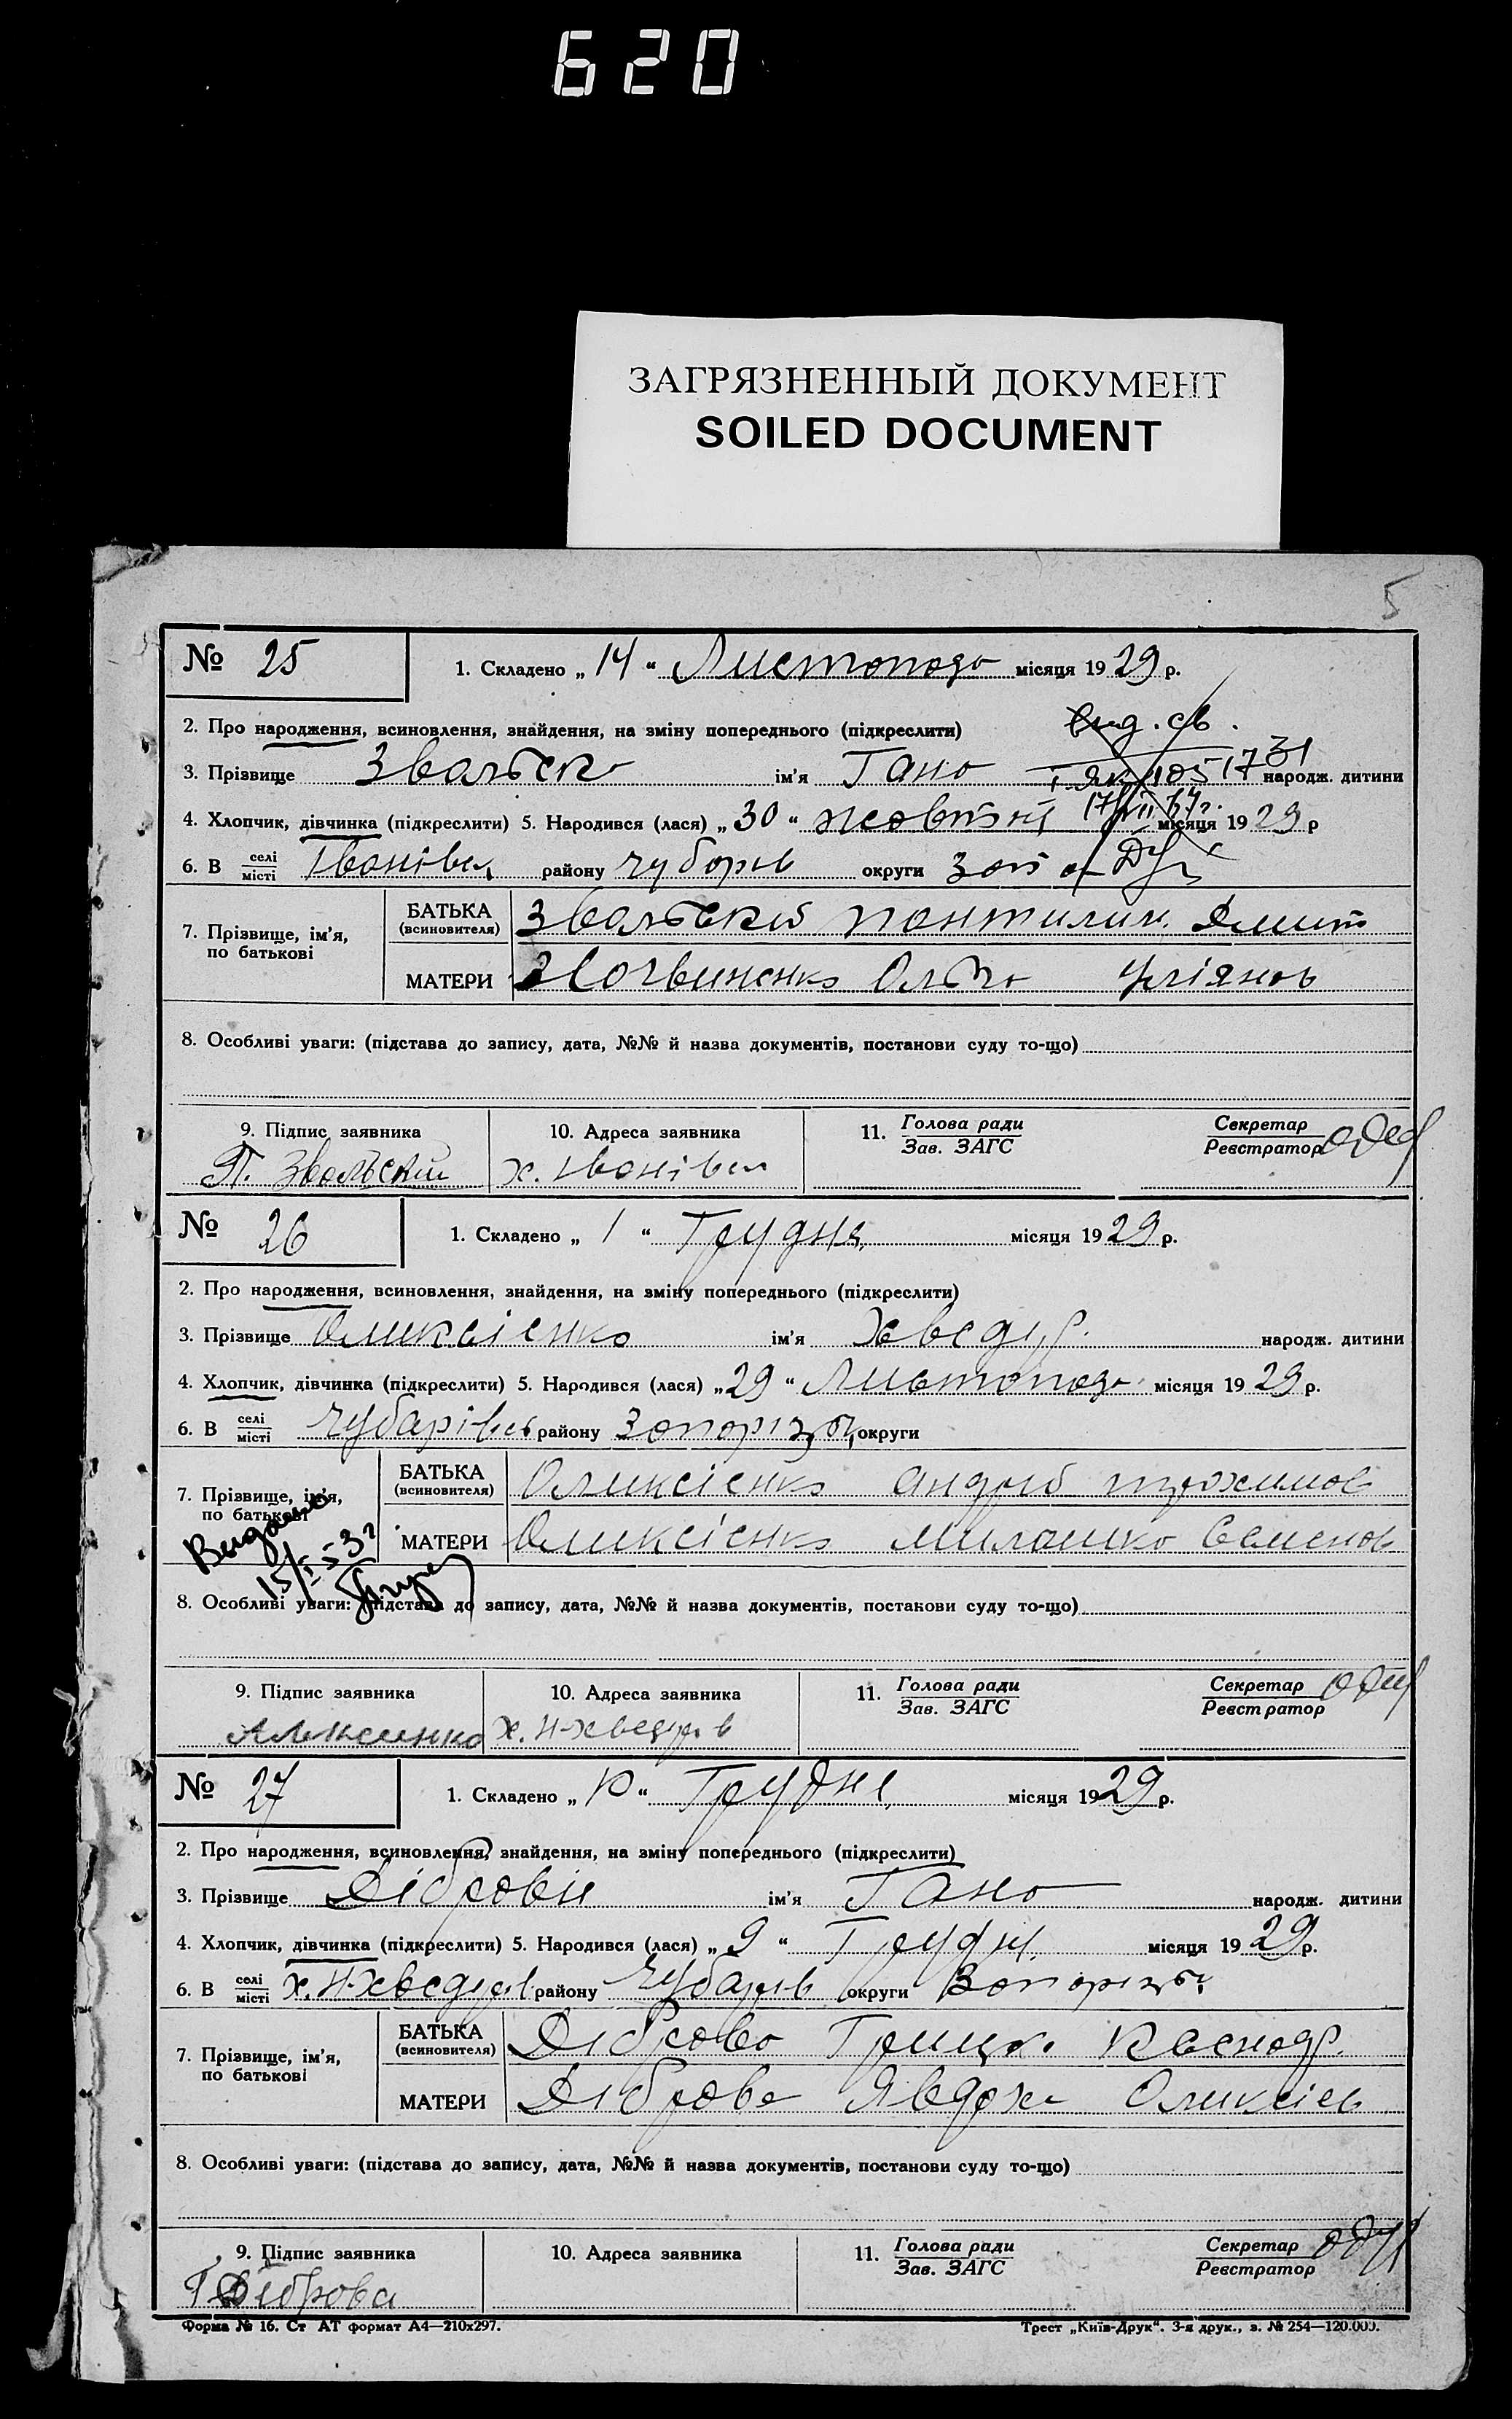 620
ЗАГРЯЗНЕННЫЙ ДОКУМЕНТ
SOILED DOCUMENT
5
№ 25 1. Складено „ 14 “ Листопада місяця 1929 р.
2. Про народження, всиновлення, знайдення, на зміну попереднього (підкреслити) вид. св.
3. Прізвище Звальска ім'я Гана народж. дитини
4. Хлопчик, дівчинка (підкреслити) 5. Народився (лася) „ 30 “ жовтня місяця 1929 р
6. В селі/місті Іванівка району Чубарів округи Зап
7. Прізвище, ім'я, по батькові
БАТЬКА (всиновителя) Звальский Пантилим. Дмит
МАТЕРИ Ольга Улiянов
8. Особливі уваги: (підстава до запису, дата, №№ й назва документів, постанови суду то-що)
9. Підпис заявника 10. Адреса заявника 11. Голова ради/Зав. ЗАГС Секретар/Реєстратор
П. Звальский х. Іванівка
№ 26 1. Складено „ 1 “ Грудня місяця 1929 р.
2. Про народження, всиновлення, знайдення, на зміну попереднього (підкреслити)
3. Прізвище Оликсієнко ім'я Хведир народж. дитини
4. Хлопчик, дівчинка (підкреслити) 5. Народився (лася) „ 29 “ Листопада місяця 1929 р.
6. В селі/місті Чубарівка району округи
7. Прізвище, ім'я, по батькові
БАТЬКА (всиновителя) Оликсієнко Андрій Трохимов
МАТЕРИ Оликсієнко Милашка Семенов
Видано
8. Особливі уваги: (підстава до запису, дата, №№ й назва документів, постанови суду то-що)
9. Підпис заявника 10. Адреса заявника 11. Голова ради/Зав. ЗАГС Секретар/Реєстратор
х. Н-Хведорів
№ 27 1. Складено „ 10 “ Грудня місяця 1929 р.
2. Про народження, всиновлення, знайдення, на зміну попереднього (підкреслити)
3. Прізвище ім'я Гана народж. дитини
4. Хлопчик, дівчинка (підкреслити) 5. Народився (лася) „ 9 “ Грудня місяця 1929 р.
6. В селі/місті х. Н-Хведорів району Чубарів округи
7. Прізвище, ім'я, по батькові
БАТЬКА (всиновителя) Діброва Грицко
МАТЕРИ Діброва Явдоха Оликсіев
8. Особливі уваги: (підстава до запису, дата, №№ й назва документів, постанови суду то-що)
9. Підпис заявника 10. Адреса заявника 11. Голова ради/Зав. ЗАГС Секретар/Реєстратор
Г Діброва
Форма № 16. Ст АТ формат А4—210х297. Трест „Київ-Друк“. 3-я друк., з. № 254—120.000.